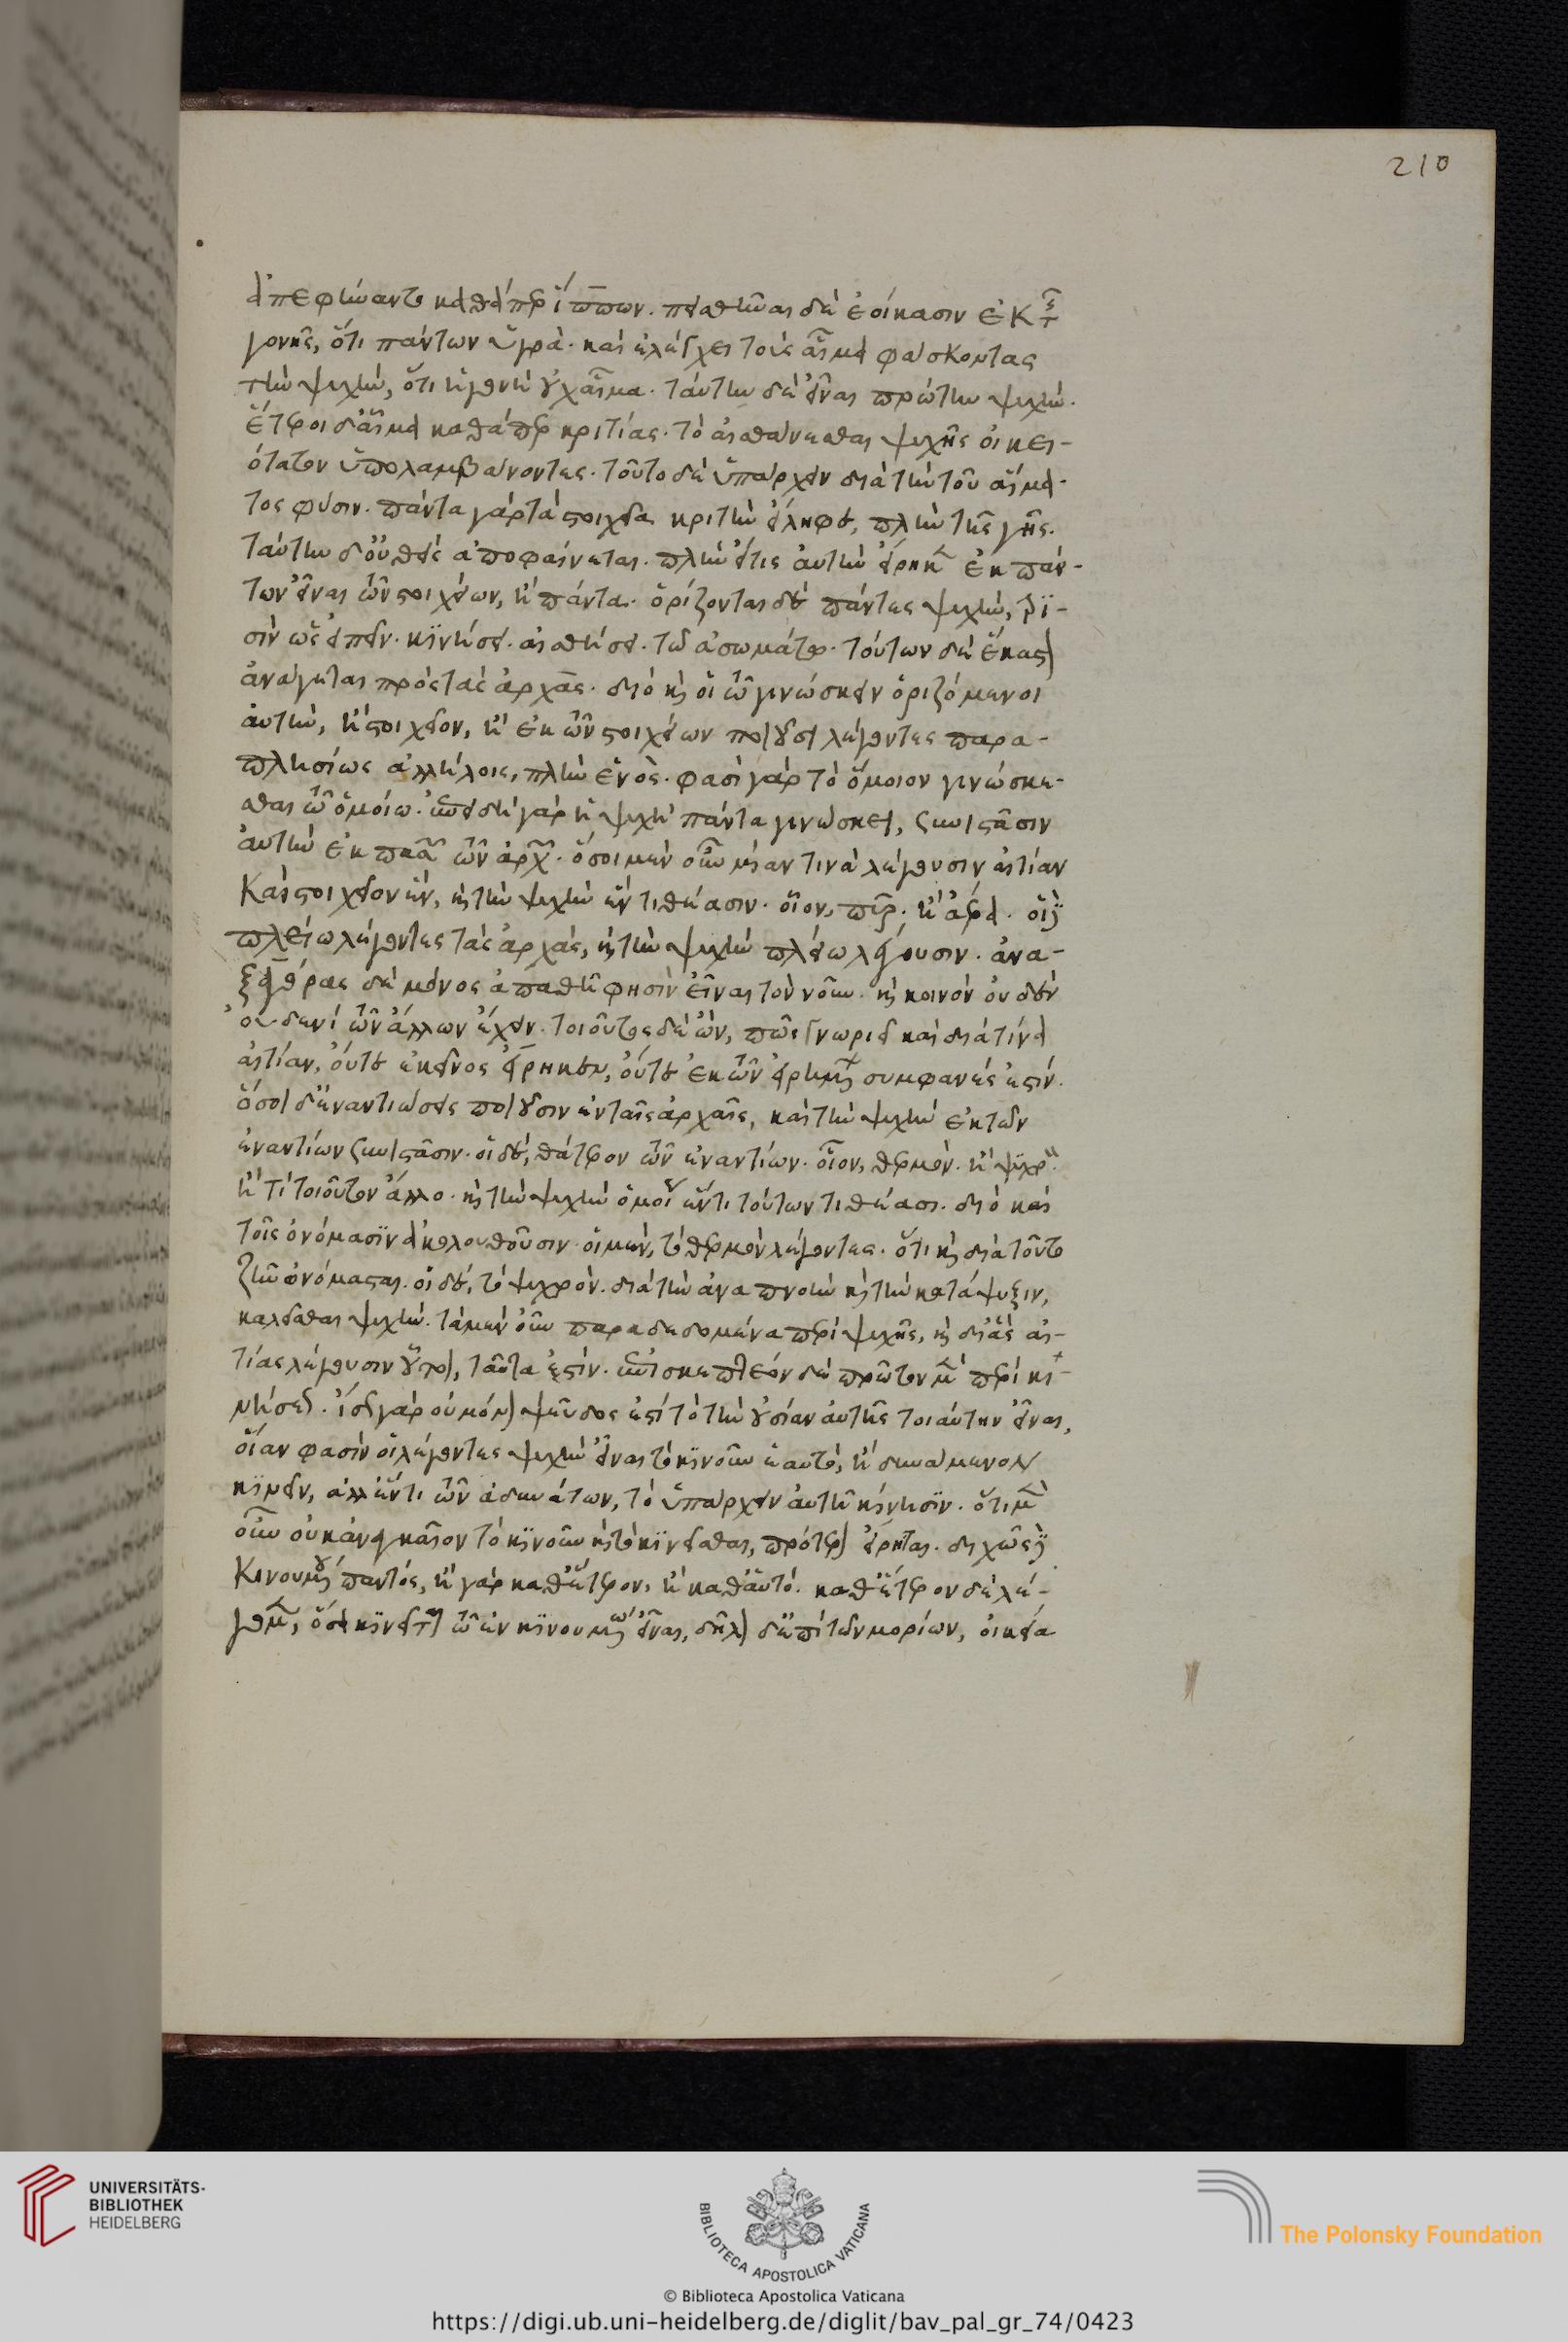 210
ἀπεφήναντο καθάπερ ἵππων. πεισθῆναι δ' ἐοίκασιν ἐκ τῆς
γονῆς, ὅτι πάντων ὑγρά. καὶ ἐλέγχει τοὺς αἷμα φάσκοντας
τὴν ψυχήν, ὅτι ἡ γονὴ οὐχ αἷμα. ταύτην δ' εἶναι πρώτην ψυχήν.
ἕτεροι δ' αἷμα καθάπερ κριτίας. τὸ αἰσθάνεσθαι ψυχῆς οἰκει-
ότατον ὑπολαμβάνοντες. τοῦτο δὲ ὑπάρχειν διὰ τὴν τοῦ αἵμα-
τος φύσιν. πάντα γὰρ τὰ στοιχεῖα κριτὴν εἴληφε, πλὴν τῆς γῆς.
ταύτην δ' οὐθεὶς ἀποφαίνεται. πλὴν εἴ τις αὐτὴν εἴρηκεν ἐκ πάν-
των εἶναι τῶν στοιχείων, ἢ πάντα. ὁρίζονται δὲ πάντες ψυχήν, τρϊ-
σὶν ὡς εἰπεῖν. κϊνήσει. αἰσθήσει. τῶ ἀσωμάτω. τούτων δὲ ἕκαστον
ἀνάγεται πρὸς τὰς ἀρχάς. διὸ καὶ οἱ τῶ γινώσκειν ὁριζόμενοι
αὐτήν, ἢ στοιχεῖον, ἢ ἐκ τῶν στοιχείων ποιοῦσι λέγοντες παρα-
πλησίως ἀλλήλοις, πλὴν ἑνός. φασὶ γὰρ τὸ ὅμοιον γινώσκε-
σθαι τῶ ὁμοίω. ἐπειδὴ γὰρ ἡ ψυχὴ πάντα γινώσκει, συνιστᾶσιν
αὐτὴν ἐκ πασῶν τῶν ἀρχῶν. ὅσοι μὲν οὖν μίαν τινὰ λέγουσιν αἰτίαν
καὶ στοιχεῖον ἕν, καὶ τὴν ψυχὴν ἓν τιθέασιν. οἷον, πῦρ. ἢ ἀέρα. οἱ δὲ
πλείω λέγοντες τὰς ἀρχάς, καὶ τὴν ψυχὴν πλείω λέγουσιν. ἀνα-
ξαγόρας δὲ μόνος ἀπαθῆ φησὶν εἶναι τὸν νοῦν. καὶ κοινὸν οὐδὲν
οὐδενὶ τῶν ἄλλων ἔχειν. τοιοῦτος δὲ ὢν, πῶς γνωριεῖ καὶ διὰ τίνα
αἰτίαν, οὔτε ἐκεῖνος εἴρηκεν, οὔτε ἐκ τῶν εἰρημένων συμφανές ἐστιν.
ὅσοι δ' ἐναντιώσεις ποιοῦσιν ἐν ταῖς ἀρχαῖς, καὶ τὴν ψυχὴν ἐκ τῶν
ἐναντίων συνιστᾶσιν. οἱ δέ, θάτερον τῶν ἐναντίων. οἷον, θερμὸν. ἢ ψυχρόν.
ἤ τι τοιοῦτον ἄλλο. καὶ τὴν ψυχὴν ὁμοίως ἕν τι τούτων τιθέασι. διὸ καὶ
τοῖς ὀνόμασϊν ἀκολουθοῦσιν. οἱ μὲν, τὸ θερμὸν λέγοντες. ὅτι καὶ διὰ τοῦτο
ζῆν ὠνόμασται. οἱ δέ, τὸ ψυχρὸν. διὰ τὴν ἀναπνοὴν καὶ τὴν κατάψυξιν,
καλεῖσθαι ψυχήν. τὰ μὲν οὖν παραδεδομένα περὶ ψυχῆς, καὶ δι' ἃς αἰ-
τίας λέγουσιν οὕτω, ταῦτά ἐστιν. ἐπισκεπτέον δὲ πρῶτον μὲν περὶ κι-
νήσεως. ἴσως γὰρ οὐ μόνον ψεῦδός ἐστι τὸ τὴν οὐσίαν αὐτῆς τοιαύτην εἶναι,
οἵαν φασὶν οἱ λέγοντες ψυχὴν εἶναι τὸ κϊνοῦν ἑαυτό, ἢ δυνάμενον
κϊνεῖν, ἀλλ' ἕν τι τῶν ἀδυνάτων, τὸ ὑπάρχειν αὐτῆ κίνησϊν. ὅτι μὲν
οὖν οὐκ ἀναγκαῖον τὸ κϊνοῦν καὶ τὸ κϊνεῖσθαι, πρότερον εἴρηται. διχῶς δὲ
κινουμένου παντός, ἢ γὰρ καθ' ἕτερον, ἢ καθ' αὑτό. καθ' ἕτερον δὲ λέ-
γομεν, ὅσα κϊνεῖται τῶ ἐν κϊνουμένω εἶναι, δῆλον δ' ἐπὶ τῶν μορίων, οἰκεία
UNIVERSITÄTS-
BIBLIOTHEK
HEIDELBERG
BIBLIOTECA APOSTOLICA VATICANA
The Polonsky Foundation
© Biblioteca Apostolica Vaticana
https://digi.ub.uni-heidelberg.de/diglit/bav_pal_gr_74/0423